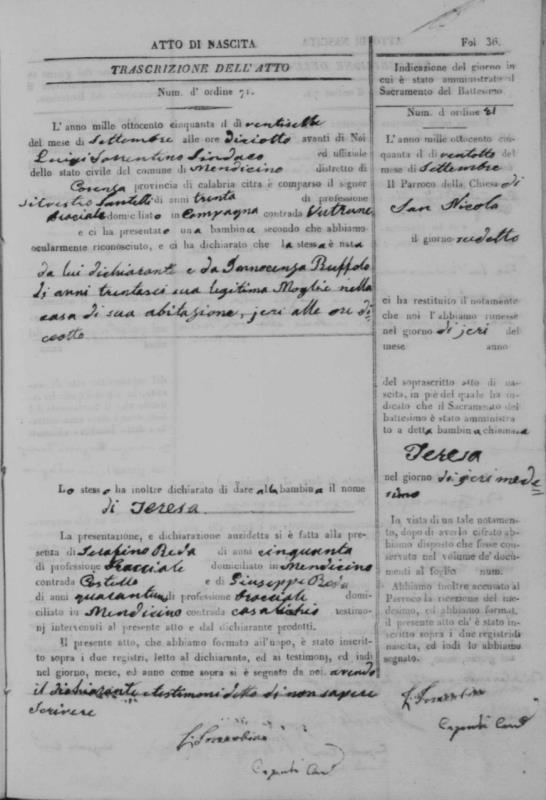 ATTO DI NASCITA
TRASCRIZIONE DELL'ATTO
Num. d' ordine 71.
L'anno mille ottocento cinquanta il dì ventisette
del mese di Settembre alle ore diciotto avanti di Noi
Luigi Sorrentino Sindaco ed uffiziale
dello stato civile del comune di Mendicino distretto di
Cosenza provincia di calabria citra è comparso il signor
Silvestro Santelli di anni trenta di professione
domiciliato in Campagna contrada
e ci ha presentato una bambina secondo che abbiamo
ocularmente riconosciuto, e ci ha dichiarato che la stessa è nata
da lui dichiarante e da Innocenza Ruffolo
di anni trentasei sua legitima Moglie nella
casa di sua abitazione, jeri alle ore di
ciotto
Lo stesso ha inoltre dichiarato di dare alla bambina il nome
di Teresa
La presentazione, e dichiarazione anzidetta si è fatta alla pre-
senza di Serafino Reda di anni cinquanta
di professione domiciliato in Mendicino
contrada Castello e di Giuseppe Reda
di anni quarantun di professione domi-
ciliato in Mendicino contrada testimo-
nj intervenuti al presente atto e dal dichiarante prodotti.
Il presente atto, che abbiamo formato all'uopo, è stato inscrit-
to sopra i due registri, letto al dichiarante, ed ai testimonj, ed indi
nel giorno, mese, ed anno come sopra si è segnato da noi avendo
il dichiarante e testimoni detto di non sapere
scrivere
L. Sorrentino
Fol 36.
Indicazione del giorno in
cui è stato amministrato il
Sacramento del Battesimo.
Num. d ordine 71
L'anno mille ottocento cin-
quanta il dì ventotto del
mese di Settembre
Il Parroco della Chiesa di
San Nicola
il giorno sudetto
ci ha restituito il notamento
che noi l'abbiamo rimesso
nel giorno di jeri del
mese anno
del soprascritto atto di na-
scita, in piè del quale ha in-
dicato che il Sacramento del
battesimo è stato amministra
to a detta bambina chiamata
Teresa
nel giorno di jeri mede
simo
In vista di un tale notamen-
to, dopo di averlo cifrato ab-
biamo disposto che fosse con-
servato nel volume de' docu-
menti al foglio num.
Abbiamo inoltre accusato al
Parroco la ricezione del me-
desimo, ed abbiamo format.
il presente atto ch' è stato in-
scritto sopra i due registri di
nascita, ed indi lo abbiamo
segnato.
L. Sorrentino